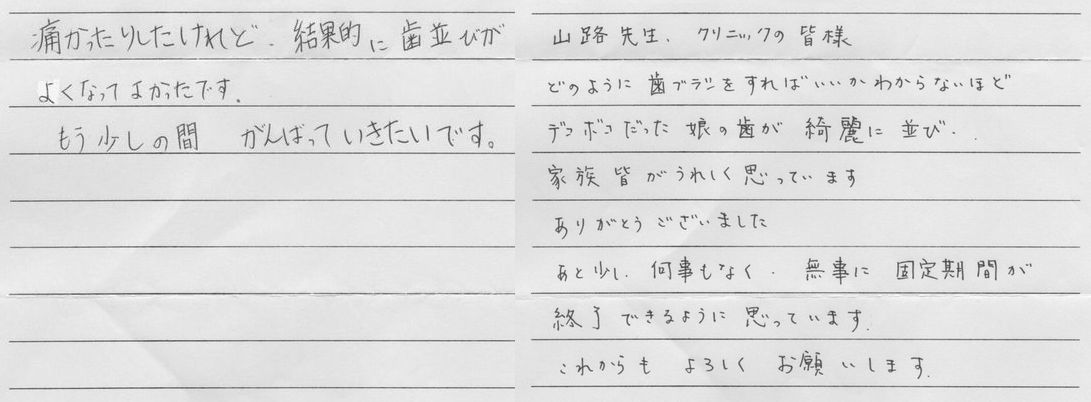 痛かったりしたけれど、結果的に歯並びが
よくなってよかったです。
もう少しの間 がんばっていきたいです。
山路先生、クリニックの皆様
どのように歯ブラシをすればいいかわからないほど
デコボコだった娘の歯が綺麗に並び、
家族皆がうれしく思っています
ありがとうございました
あと少し、何事もなく、無事に固定期間が
終了できるように思っています。
これからもよろしくお願いします。